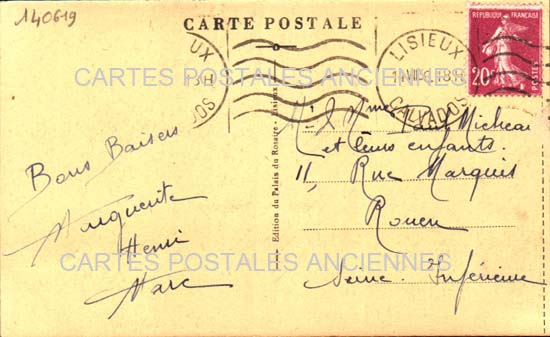 140619
CARTE POSTALE
LISIEUX
CALVADOS
REPUBLIQUE FRANÇAISE
20c
POSTES
UX
DOS
CARTES POSTALES ANCIENNES
Bons Baisers
Marguerite
Henri
Marc
Edition du Palais du Rosaire - Lisieux
Mme Paul Micheau
et leurs enfants.
11, Rue Marquis
Rouen
Seine Inférieure
CARTES POSTALES ANCIENNES